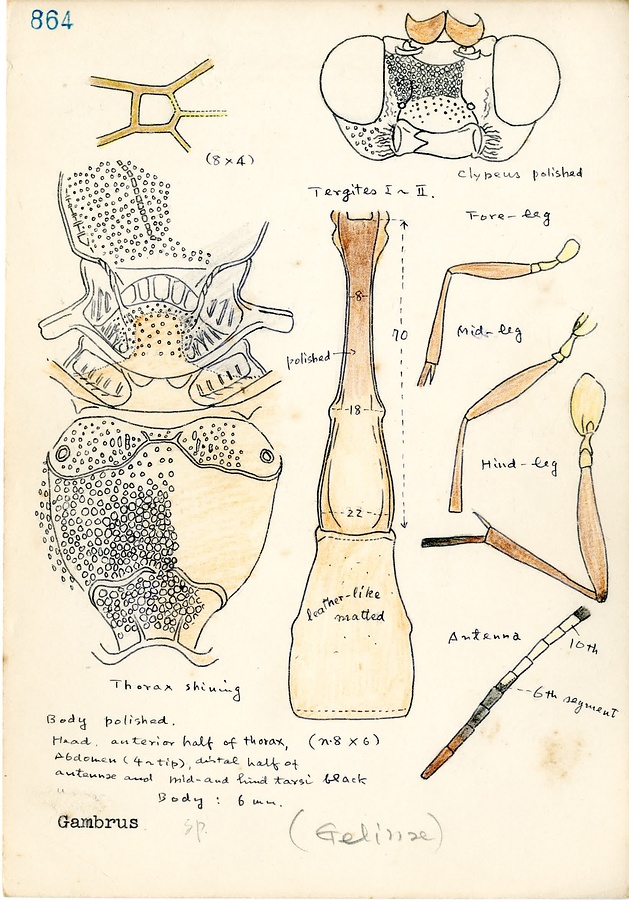 864
(8 x 4)
Clypeus polished
Tergites I ~ II.
Fore-leg
8
70
Mid-leg
polished
18
Hind-leg
22
leather-like
matted
Antenna
10th
6th segment
Thorax shining
Body polished.
Head, anterior half of thorax, (n.8 x 6)
Abdomen (4~tip), distal half of
antennae and mid-and hind tarsi black
Body : 6 mm.
Gambrus sp. (Gelinae)